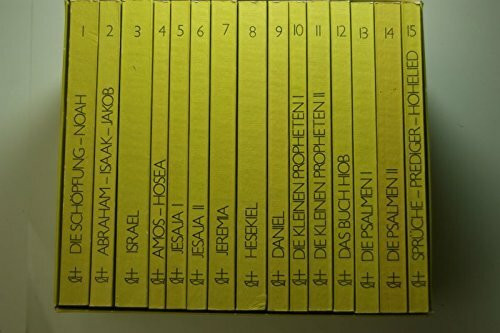 1
DIE SCHÖPFUNG – NOAH
2
ABRAHAM – ISAAK – JAKOB
3
ISRAEL
4
AMOS – HOSEA
5
JESAJA I
6
JESAJA II
7
JEREMIA
8
HESEKIEL
9
DANIEL
10
DIE KLEINEN PROPHETEN I
11
DIE KLEINEN PROPHETEN II
12
DAS BUCH HIOB
13
DIE PSALMEN I
14
DIE PSALMEN II
15
SPRÜCHE – PREDIGER – HOHELIED